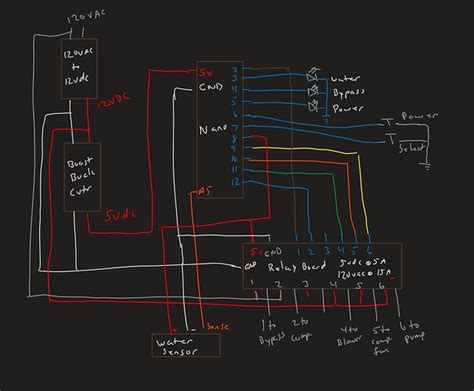 120VAC
120VAC
to
12vdc
12VDC
Boost
Buck
Cvtr
5vdc
5v
GND
Nano
A5
2
3
4
5
6
7
8
9
10
11
12
water
Bypass
Power
Power
Select
5v GND 1 2 3 4 5 6
GND Relay Board
5vdc @ 5A
120vac @ 15A
1 2 3 4 5 6
1 to
Bypass
2 to
Comp.
4 to
Blower
5 to
comp.
fan
6 to
pump
+ - sense
water
sensor